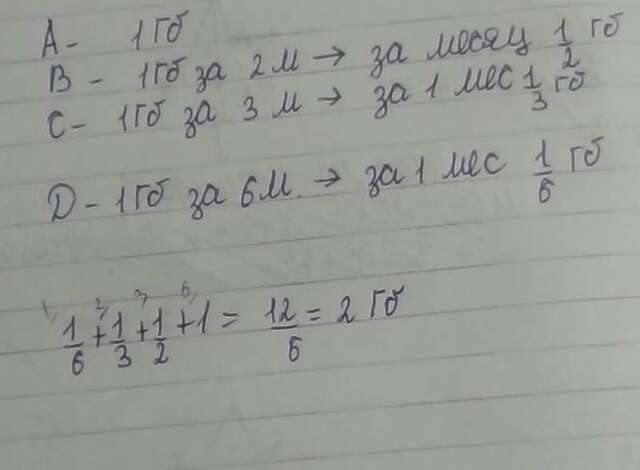 A - 1 Гб
B - 1Гб за 2 м → за месяц 1/2 Гб
C - 1Гб за 3 м → за 1 мес 1/3 Гб
D - 1 Гб за 6 м. → за 1 мес 1/6 Гб
1/6 + 1/3 + 1/2 + 1 = 12/6 = 2 Гб